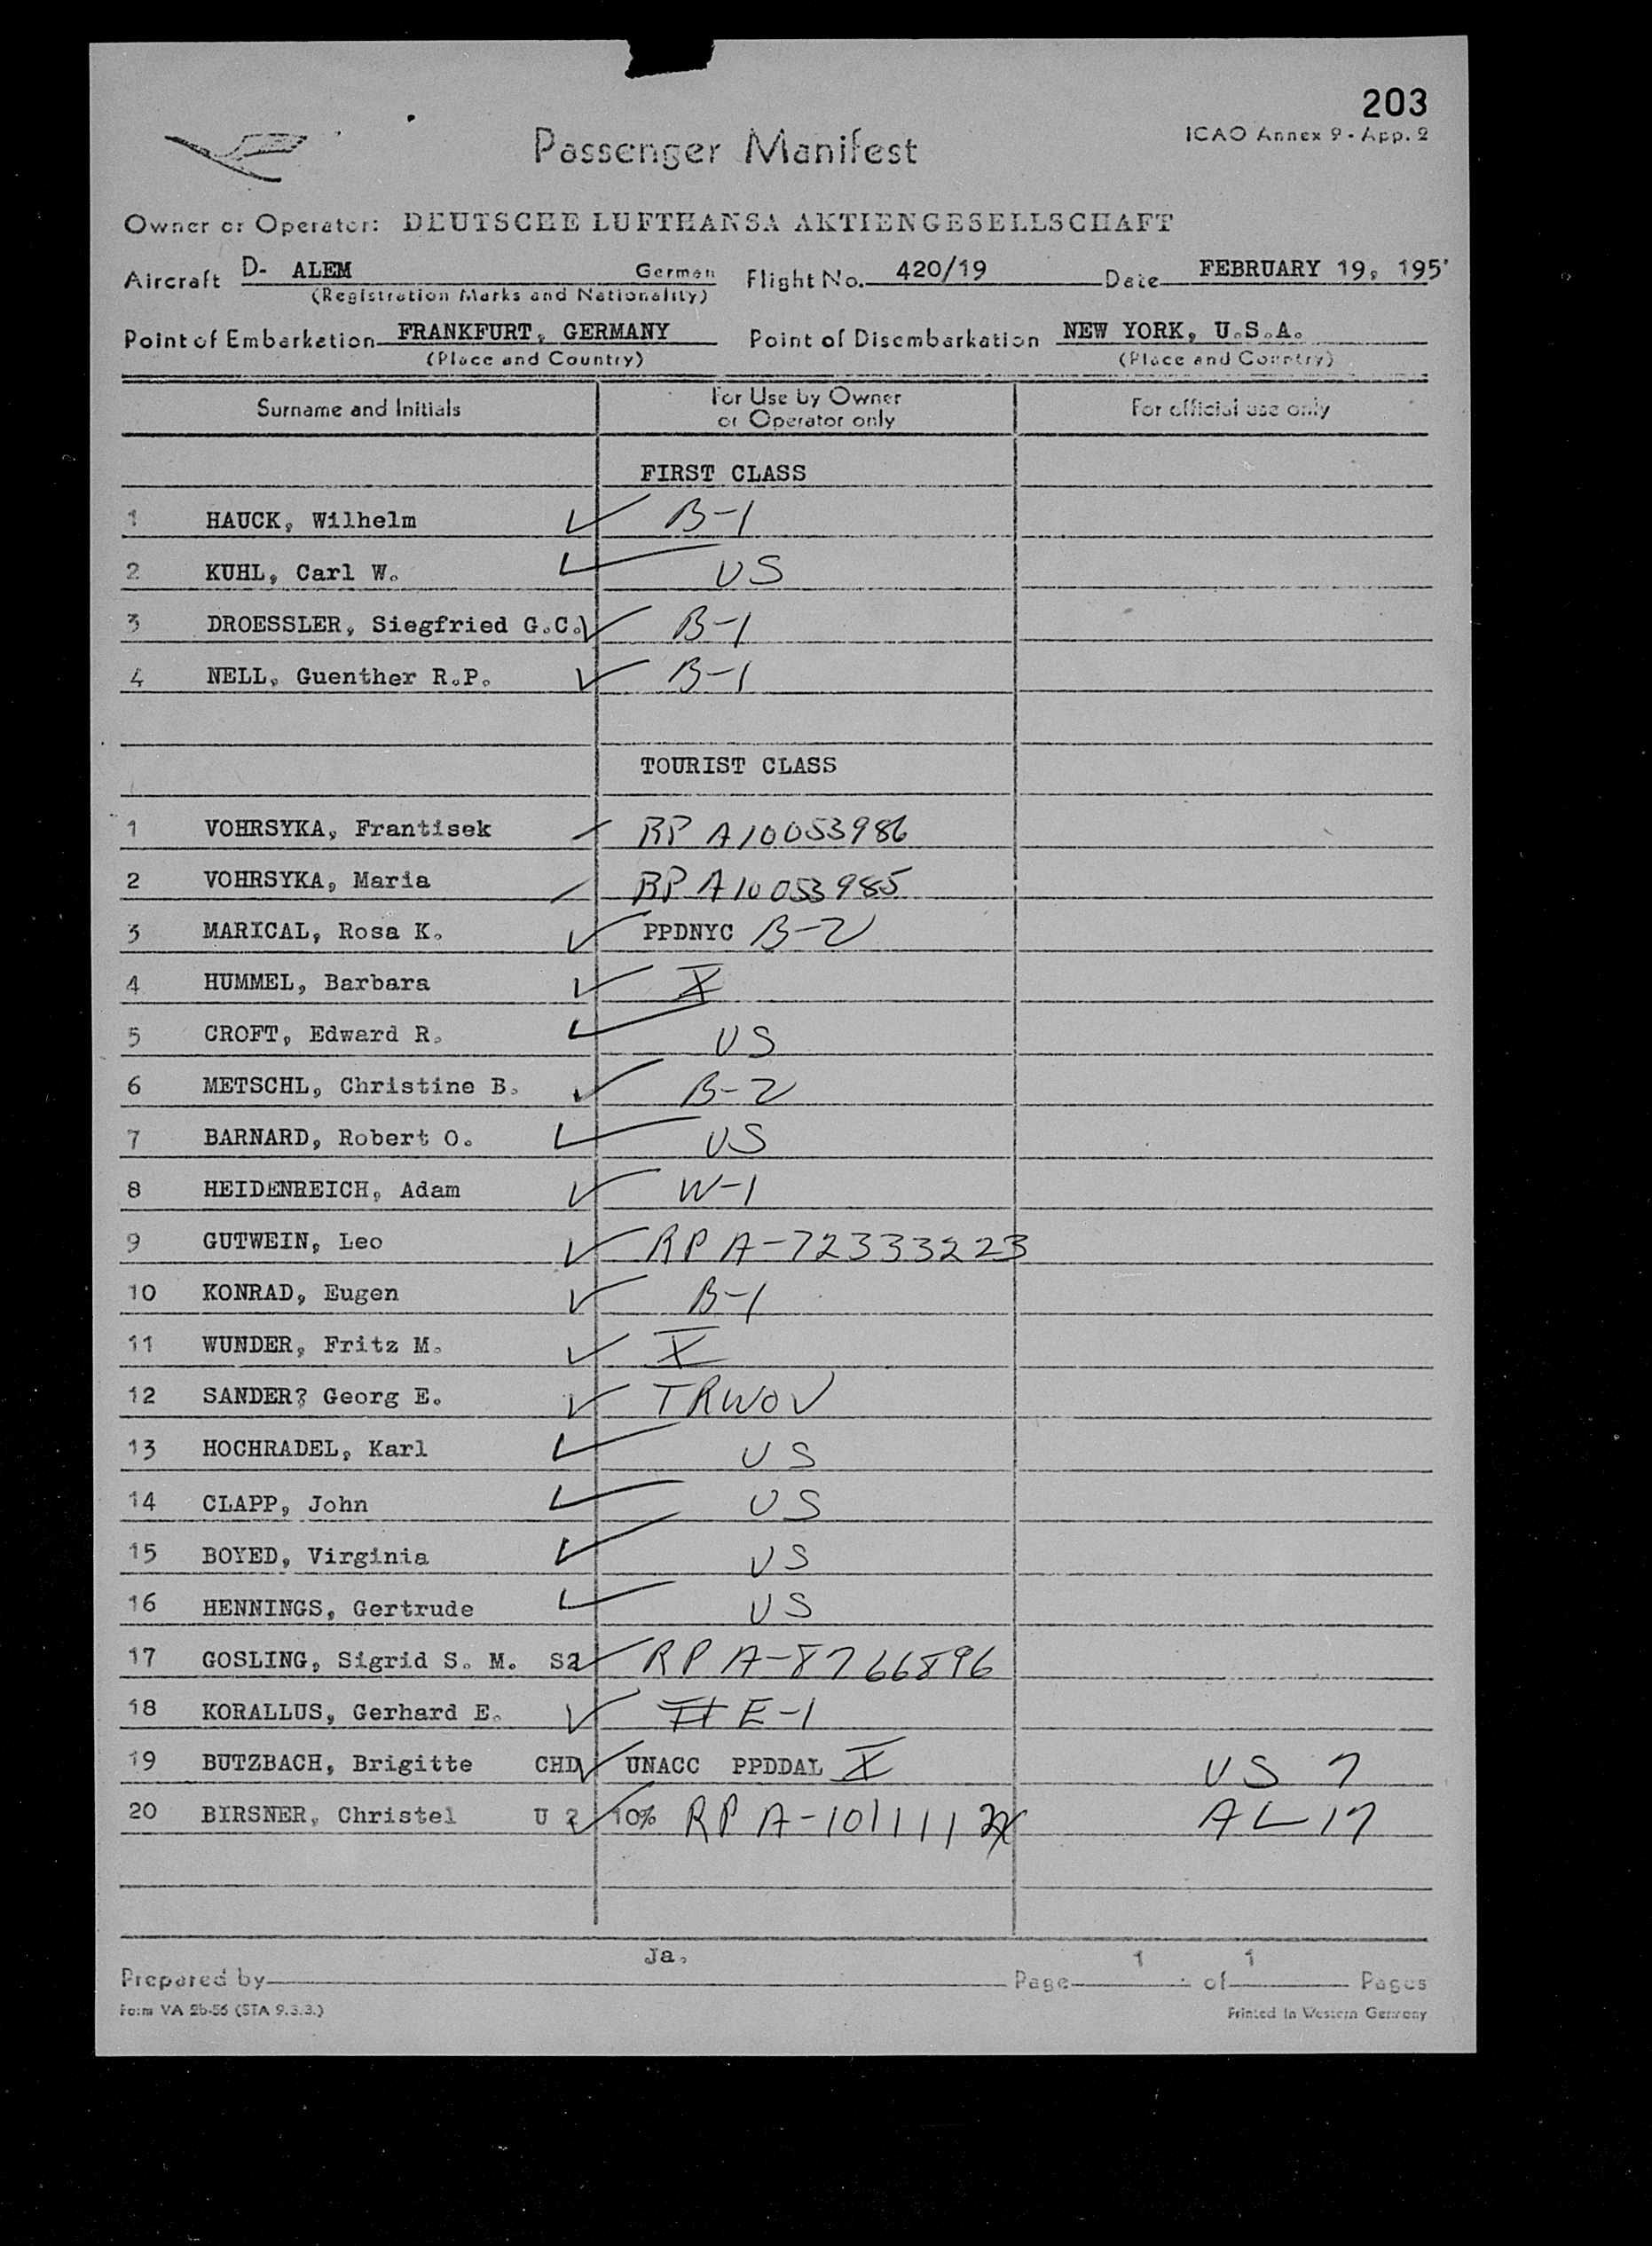 203
ICAO Annex 9 - App. 2
Passenger Manifest
Owner or Operator: DEUTSCHE LUFTHANSA AKTIENGESELLSCHAFT
Aircraft D- ALEM German Flight No. 420/19 Date FEBRUARY 19, 195
(Registration Marks and Nationality)
Point of Embarkation FRANKFURT, GERMANY Point of Disembarkation NEW YORK, U.S.A.
(Place and Country) (Place and Country)
Surname and Initials For Use by Owner or Operator only For official use only
FIRST CLASS
1 HAUCK, Wilhelm B-1
2 KUHL, Carl W. US
3 DROESSLER, Siegfried G.C. B-1
4 NELL, Guenther R.P. B-1
TOURIST CLASS
1 VOHRSYKA, Frantisek RP A10053986
2 VOHRSYKA, Maria RP A10053985
3 MARICAL, Rosa K. PPDNYC B-2
4 HUMMEL, Barbara X
5 CROFT, Edward R. US
6 METSCHL, Christine B. B-2
7 BARNARD, Robert O. US
8 HEIDENREICH, Adam W-1
9 GUTWEIN, Leo RP A-72333223
10 KONRAD, Eugen B-1
11 WUNDER, Fritz M. X
12 SANDER? Georg E. TRWOV
13 HOCHRADEL, Karl US
14 CLAPP, John US
15 BOYED, Virginia US
16 HENNINGS, Gertrude US
17 GOSLING, Sigrid S. M. S2 RP A-8766896
18 KORALLUS, Gerhard E. E-1
19 BUTZBACH, Brigitte CHD UNACC PPDDAL X US 7
20 BIRSNER, Christel U 2 10% RP A-1011112 AL 17
Ja.
Prepared by Page 1 of 1 Pages
Form VA 2b-56 (STA 9.3.3.) Printed in Western Germany